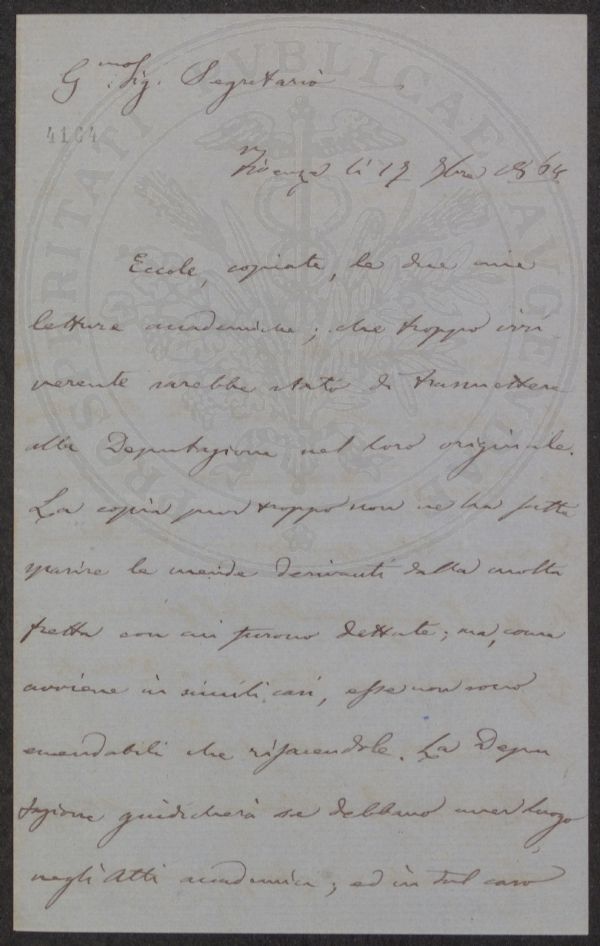 G.mo Sig. Segretario
4164
li 17
Eccole, copiate, le due mie
letture academiche; che troppo irri
verente sarebbe stato di trasmettere
alla Deputazione nel loro originale.
La copia pur troppo non ne ha fatto
sparire le mende derivanti dalla molta
fretta con cui furono dettate; ma, come
avviene in simili casi, esse non sono
emendabili che rifacendole. La Depu
tazione giudicherà se debbano aver luogo
negli Atti academici; ed in tal caso
PROSPERITATI PVBLICAE AVGENDAE